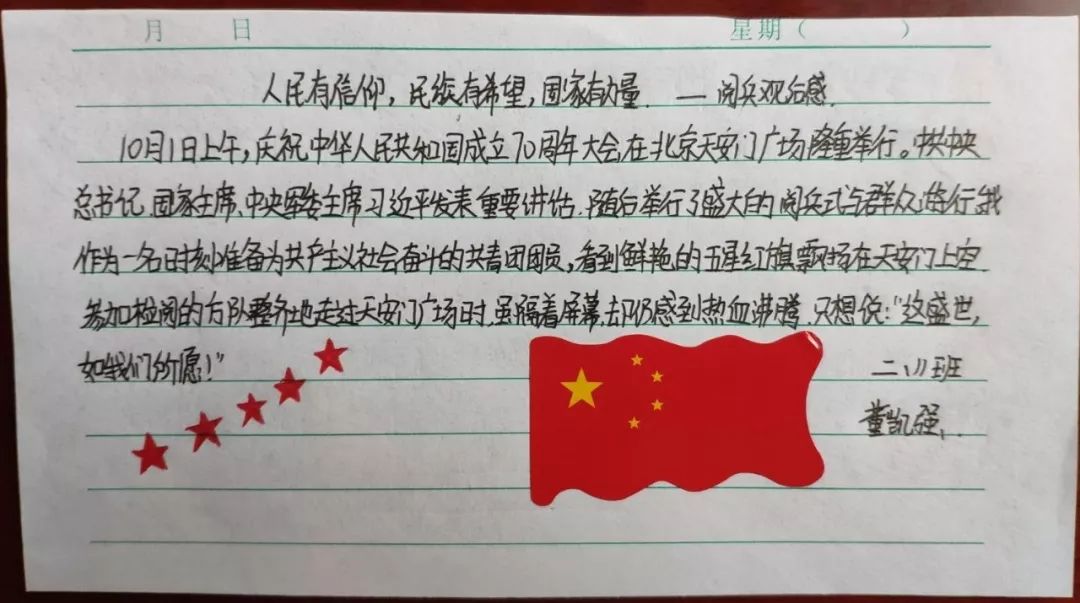 月 日 星期（ ）
人民有信仰，民族有希望，国家有力量 — 阅兵观后感
10月1日上午，庆祝中华人民共和国成立70周年大会在北京天安门广场隆重举行。中共中央
总书记、国家主席、中央军委主席习近平发表重要讲话，随后举行了盛大的阅兵式与群众游行，我
作为一名时刻准备为共产主义社会奋斗的共青团团员，看到鲜艳的五星红旗飘扬在天安门上空
参加检阅的方队整齐地走过天安门广场时，虽隔着屏幕，却仍感到热血沸腾，只想说：“这盛世，
如我们所愿！”
二、11班
董凯强